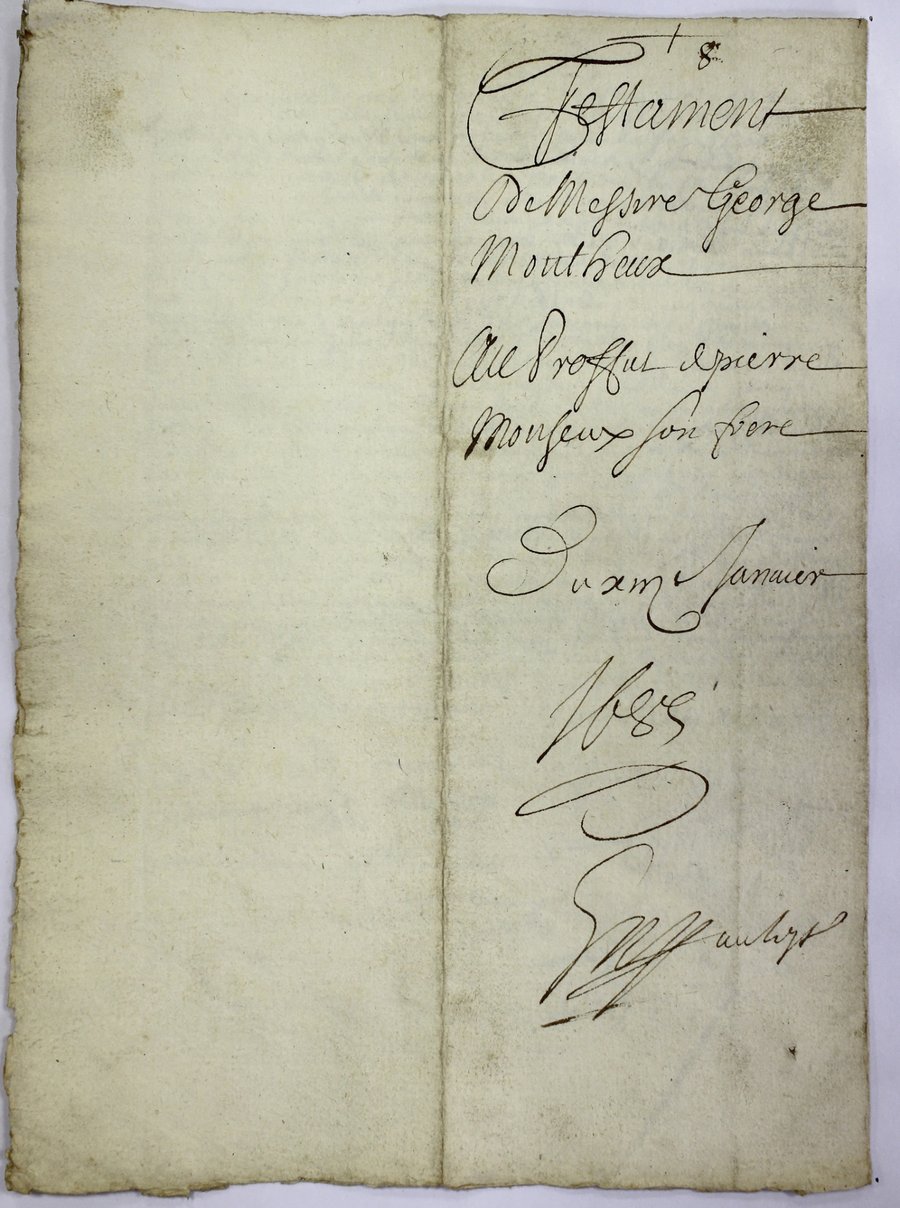 8
Testament
De Messire George
Montheux
Au Proffit de pierre
Monseux son frere
Du xiii Januier
1685